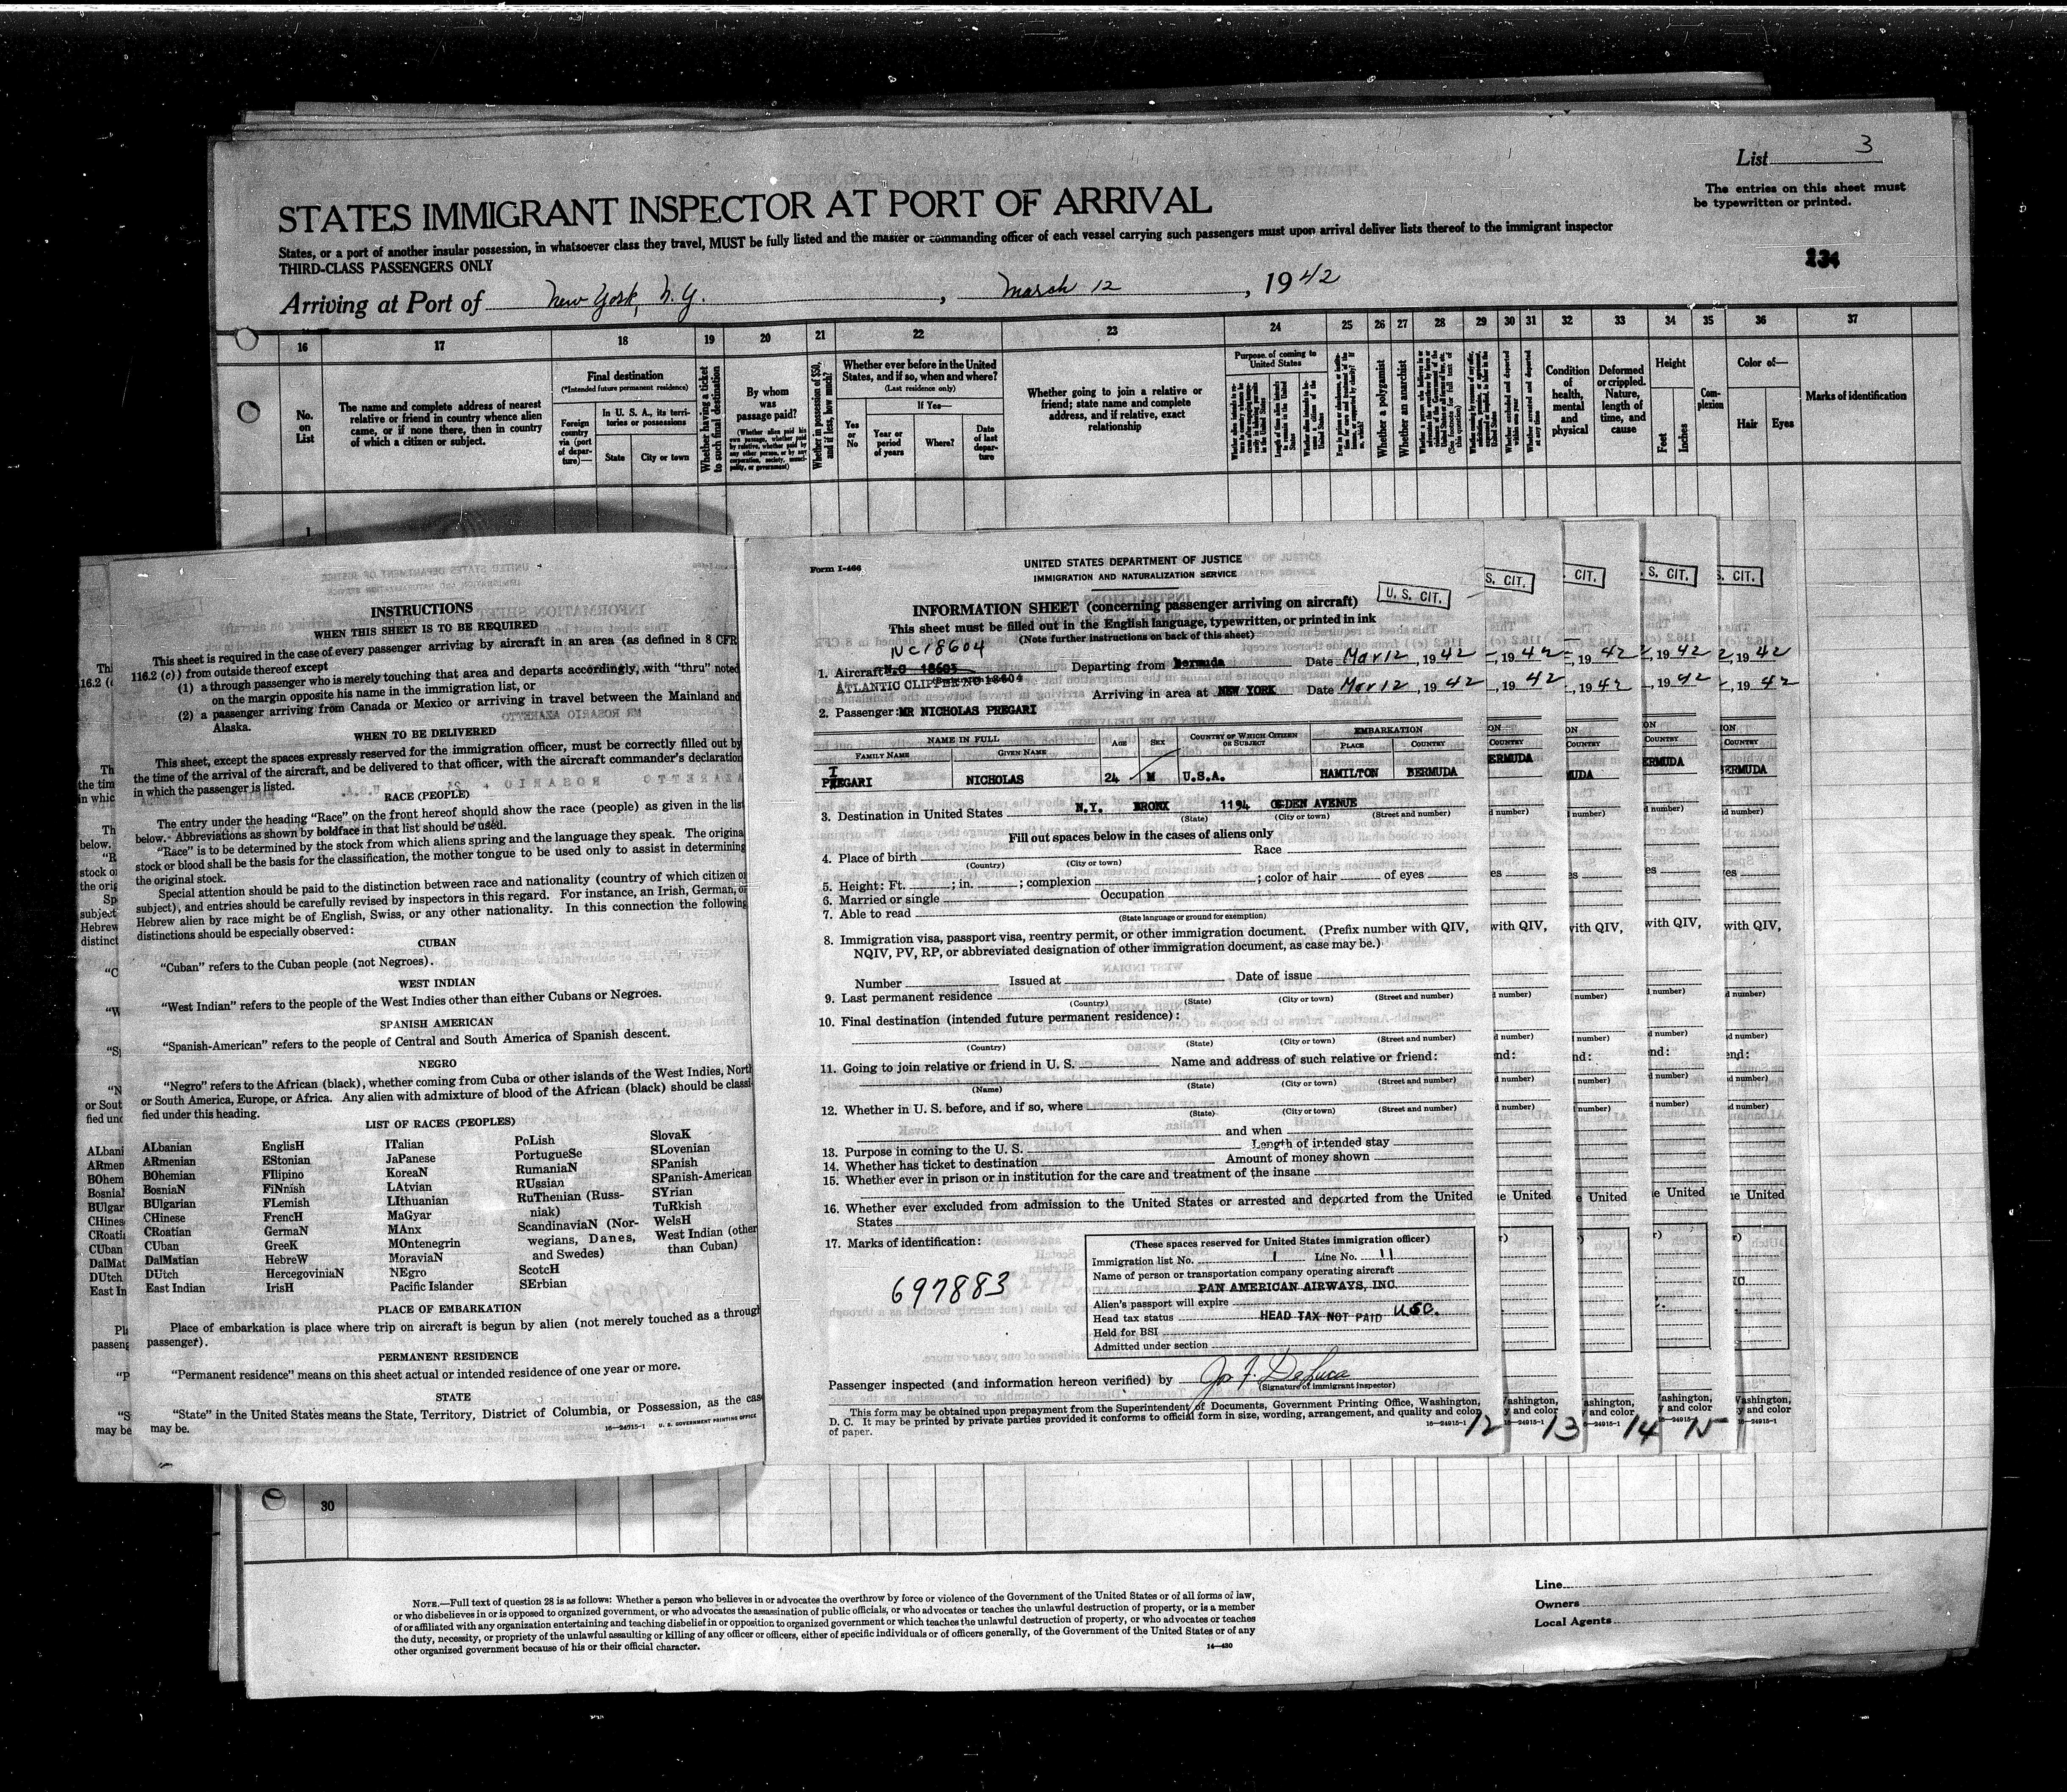 List 3
The entries on this sheet must
be typewritten or printed.
STATES IMMIGRANT INSPECTOR AT PORT OF ARRIVAL
States, or a port of another insular possession, in whatsoever class they travel, MUST be fully listed and the master or commanding officer of each vessel carrying such passengers must upon arrival deliver lists thereof to the immigrant inspector
THIRD-CLASS PASSENGERS ONLY
134
Arriving at Port of New York, N.Y. , March 12 , 1942
16 17 18 19 20 21 22 23 24 25 26 27 28 29 30 31 32 33 34 35 36 37
No.
on
List
The name and complete address of nearest
relative or friend in country whence alien
came, or if none there, then in country
of which a citizen or subject.
Final destination
(*Intended future permanent residence)
Foreign
country
via (port
of depar-
ture)—
In U. S. A., its terri-
tories or possessions
State City or town
Whether having a ticket
to such final destination
By whom
was
passage paid?
(Whether alien paid his
own passage, whether paid
by relative, whether paid by
any other person, or by any
corporation, society, munici-
pality, or government)
Whether in possession of $50,
and if less, how much?
Whether ever before in the United
States, and if so, when and where?
(Last residence only)
Yes
or
No
If Yes—
Year or
period
of years
Where?
Date
of last
depar-
ture
Whether going to join a relative or
friend; state name and complete
address, and if relative, exact
relationship
Purpose of coming to
United States
Whether a polygamist
Whether an anarchist
Condition
of
health,
mental
and
physical
Deformed
or crippled.
Nature,
length of
time, and
cause
Height
Feet Inches
Com-
plexion
Color of—
Hair Eyes
Marks of identification
INSTRUCTIONS
WHEN THIS SHEET IS TO BE REQUIRED
This sheet is required in the case of every passenger arriving by aircraft in an area (as defined in 8 CFR
116.2 (c)) from outside thereof except
(1) a through passenger who is merely touching that area and departs accordingly, with "thru" noted
on the margin opposite his name in the immigration list, or
(2) a passenger arriving from Canada or Mexico or arriving in travel between the Mainland and
Alaska.
WHEN TO BE DELIVERED
This sheet, except the spaces expressly reserved for the immigration officer, must be correctly filled out by
the time of the arrival of the aircraft, and be delivered to that officer, with the aircraft commander's declaration
in which the passenger is listed.
RACE (PEOPLE)
The entry under the heading "Race" on the front hereof should show the race (people) as given in the list
below. Abbreviations as shown by boldface in that list should be used.
"Race" is to be determined by the stock from which aliens spring and the language they speak. The origina
stock or blood shall be the basis for the classification, the mother tongue to be used only to assist in determining
the original stock.
Special attention should be paid to the distinction between race and nationality (country of which citizen or
subject), and entries should be carefully revised by inspectors in this regard. For instance, an Irish, German, or
Hebrew alien by race might be of English, Swiss, or any other nationality. In this connection the following
distinctions should be especially observed:
CUBAN
"Cuban" refers to the Cuban people (not Negroes).
WEST INDIAN
"West Indian" refers to the people of the West Indies other than either Cubans or Negroes.
SPANISH AMERICAN
"Spanish-American" refers to the people of Central and South America of Spanish descent.
NEGRO
"Negro" refers to the African (black), whether coming from Cuba or other islands of the West Indies, North
or South America, Europe, or Africa. Any alien with admixture of blood of the African (black) should be classi-
fied under this heading.
LIST OF RACES (PEOPLES)
ALbanian
ARmenian
BOhemian
BosniaN
BUlgarian
CHinese
CRoatian
CUban
DalMatian
DUtch
East Indian
EnglisH
EStonian
FIlipino
FiNnish
FLemish
FrencH
GermaN
GreeK
HebreW
HercegoviniaN
IrisH
ITalian
JaPanese
KoreaN
LAtvian
LIthuanian
MaGyar
MAnx
MOntenegrin
MoraviaN
NEgro
Pacific Islander
PoLish
PortugueSe
RumaniaN
RUssian
RuThenian (Russ-
niak)
ScandinaviaN (Nor-
wegians, Danes,
and Swedes)
ScotcH
SErbian
SlovaK
SLovenian
SPanish
SPanish-American
SYrian
TuRkish
WelsH
West Indian (other
than Cuban)
PLACE OF EMBARKATION
Place of embarkation is place where trip on aircraft is begun by alien (not merely touched as a through
passenger).
PERMANENT RESIDENCE
"Permanent residence" means on this sheet actual or intended residence of one year or more.
STATE
"State" in the United States means the State, Territory, District of Columbia, or Possession, as the case
may be.
16—24915-1 U. S. GOVERNMENT PRINTING OFFICE
Form I-466
UNITED STATES DEPARTMENT OF JUSTICE
IMMIGRATION AND NATURALIZATION SERVICE
U. S. CIT.
INFORMATION SHEET (concerning passenger arriving on aircraft)
This sheet must be filled out in the English language, typewritten, or printed in ink
(Note further instructions on back of this sheet)
NC18604
1. Aircraft N.C 18603 Departing from Bermuda Date Mar 12, 1942
ATLANTIC CLIPPER NC 18604
Arriving in area at NEW YORK Date Mar 12, 1942
2. Passenger: MR NICHOLAS PREGARI
NAME IN FULL AGE SEX COUNTRY OF WHICH CITIZEN OR SUBJECT EMBARKATION
FAMILY NAME GIVEN NAME PLACE COUNTRY
I
PREGARI NICHOLAS 24 M U.S.A. HAMILTON BERMUDA
3. Destination in United States N.Y. BRONX 1194 OGDEN AVENUE
(State) (City or town) (Street and number)
Fill out spaces below in the cases of aliens only
4. Place of birth Race
(Country) (City or town)
5. Height: Ft. ; in. ; complexion ; color of hair of eyes
6. Married or single Occupation
7. Able to read
(State language or ground for exemption)
8. Immigration visa, passport visa, reentry permit, or other immigration document. (Prefix number with QIV,
NQIV, PV, RP, or abbreviated designation of other immigration document, as case may be.)
Number Issued at Date of issue
9. Last permanent residence
(Country) (State) (City or town) (Street and number)
10. Final destination (intended future permanent residence):
(Country) (State) (City or town) (Street and number)
11. Going to join relative or friend in U. S. Name and address of such relative or friend:
(Name) (State) (City or town) (Street and number)
12. Whether in U. S. before, and if so, where
(State) (City or town) (Street and number)
and when
13. Purpose in coming to the U. S. Length of intended stay
14. Whether has ticket to destination Amount of money shown
15. Whether ever in prison or in institution for the care and treatment of the insane
16. Whether ever excluded from admission to the United States or arrested and deported from the United
States
17. Marks of identification:
697883
(These spaces reserved for United States immigration officer)
Immigration list No. 1 Line No. 11
Name of person or transportation company operating aircraft
PAN AMERICAN AIRWAYS, INC.
Alien's passport will expire
Head tax status HEAD TAX NOT PAID USC.
Held for BSI
Admitted under section
Passenger inspected (and information hereon verified) by Jos F. DeLuca
(Signature of immigrant inspector)
This form may be obtained upon prepayment from the Superintendent of Documents, Government Printing Office, Washington,
D. C. It may be printed by private parties provided it conforms to official form in size, wording, arrangement, and quality and color
of paper.
16—24915-1
12 13 14 15
30
NOTE.—Full text of question 28 is as follows: Whether a person who believes in or advocates the overthrow by force or violence of the Government of the United States or of all forms of law,
or who disbelieves in or is opposed to organized government, or who advocates the assassination of public officials, or who advocates or teaches the unlawful destruction of property, or is a member
of or affiliated with any organization entertaining and teaching disbelief in or opposition to organized government or which teaches the unlawful destruction of property, or who advocates or teaches
the duty, necessity, or propriety of the unlawful assaulting or killing of any officer or officers, either of specific individuals or of officers generally, of the Government of the United States or of any
other organized government because of his or their official character.
14—430
Line
Owners
Local Agents